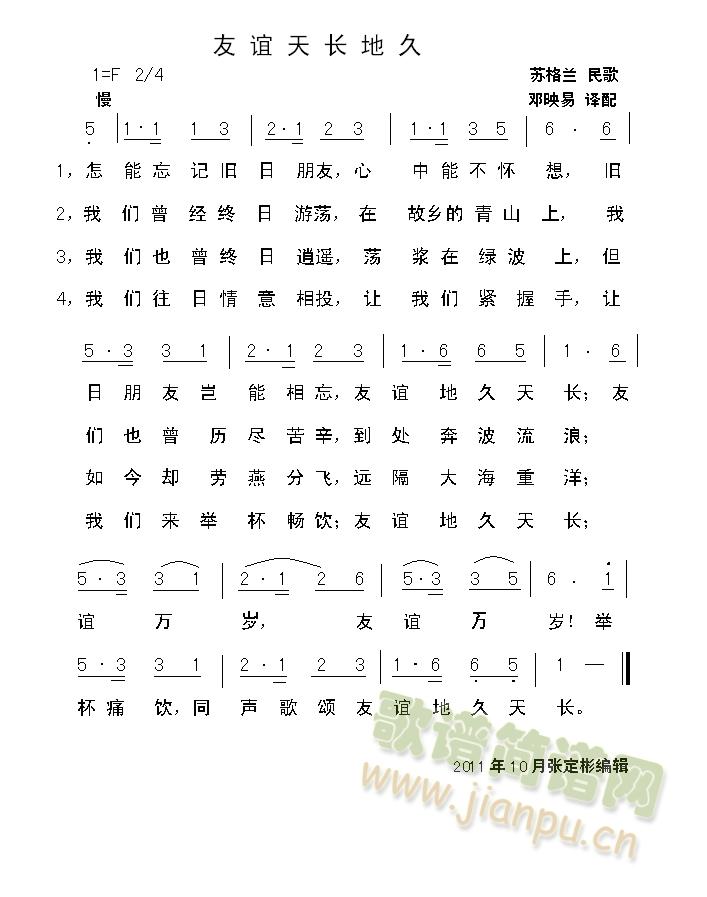 友谊天长地久
1=F 2/4 苏格兰 民歌
慢 邓映易 译配
5 | 1·1 1 3 | 2·1 2 3 | 1·1 3 5 | 6 · 6 |
1,怎能忘记旧日朋友,心中能不怀想,旧
2,我们曾经终日游荡,在故乡的青山上,我
3,我们也曾终日逍遥,荡浆在绿波上,但
4,我们往日情意相投,让我们紧握手,让
5·3 3 1 | 2·1 2 3 | 1·6 6 5 | 1·6 |
日朋友岂能相忘,友谊地久天长;友
们也曾历尽苦辛,到处奔波流浪;
如今却劳燕分飞,远隔大海重洋;
我们来举杯畅饮;友谊地久天长;
5·3 3 1 | 2·1 2 6 | 5·3 3 5 | 6 . 1 |
谊万岁,友谊万岁!举
5·3 3 1 | 2·1 2 3 | 1·6 6 5 | 1 — ‖
杯痛饮,同声歌颂友谊地久天长。
歌谱简谱网
2011年10月张定彬编辑
www.jianpu.cn